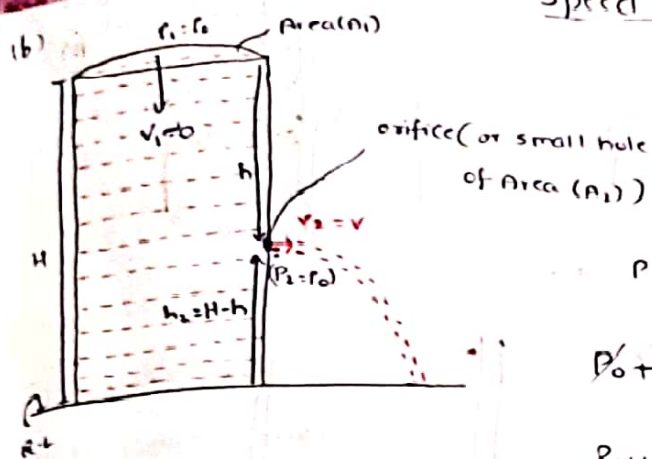 Speed
(b)
P₁ = P₀
Area(A₁)
V₁≈0
orifice( or small hole
of Area (A₂))
h
V₂ = V
H
(P₂=P₀)
h₂=H-h
P
P₀ +